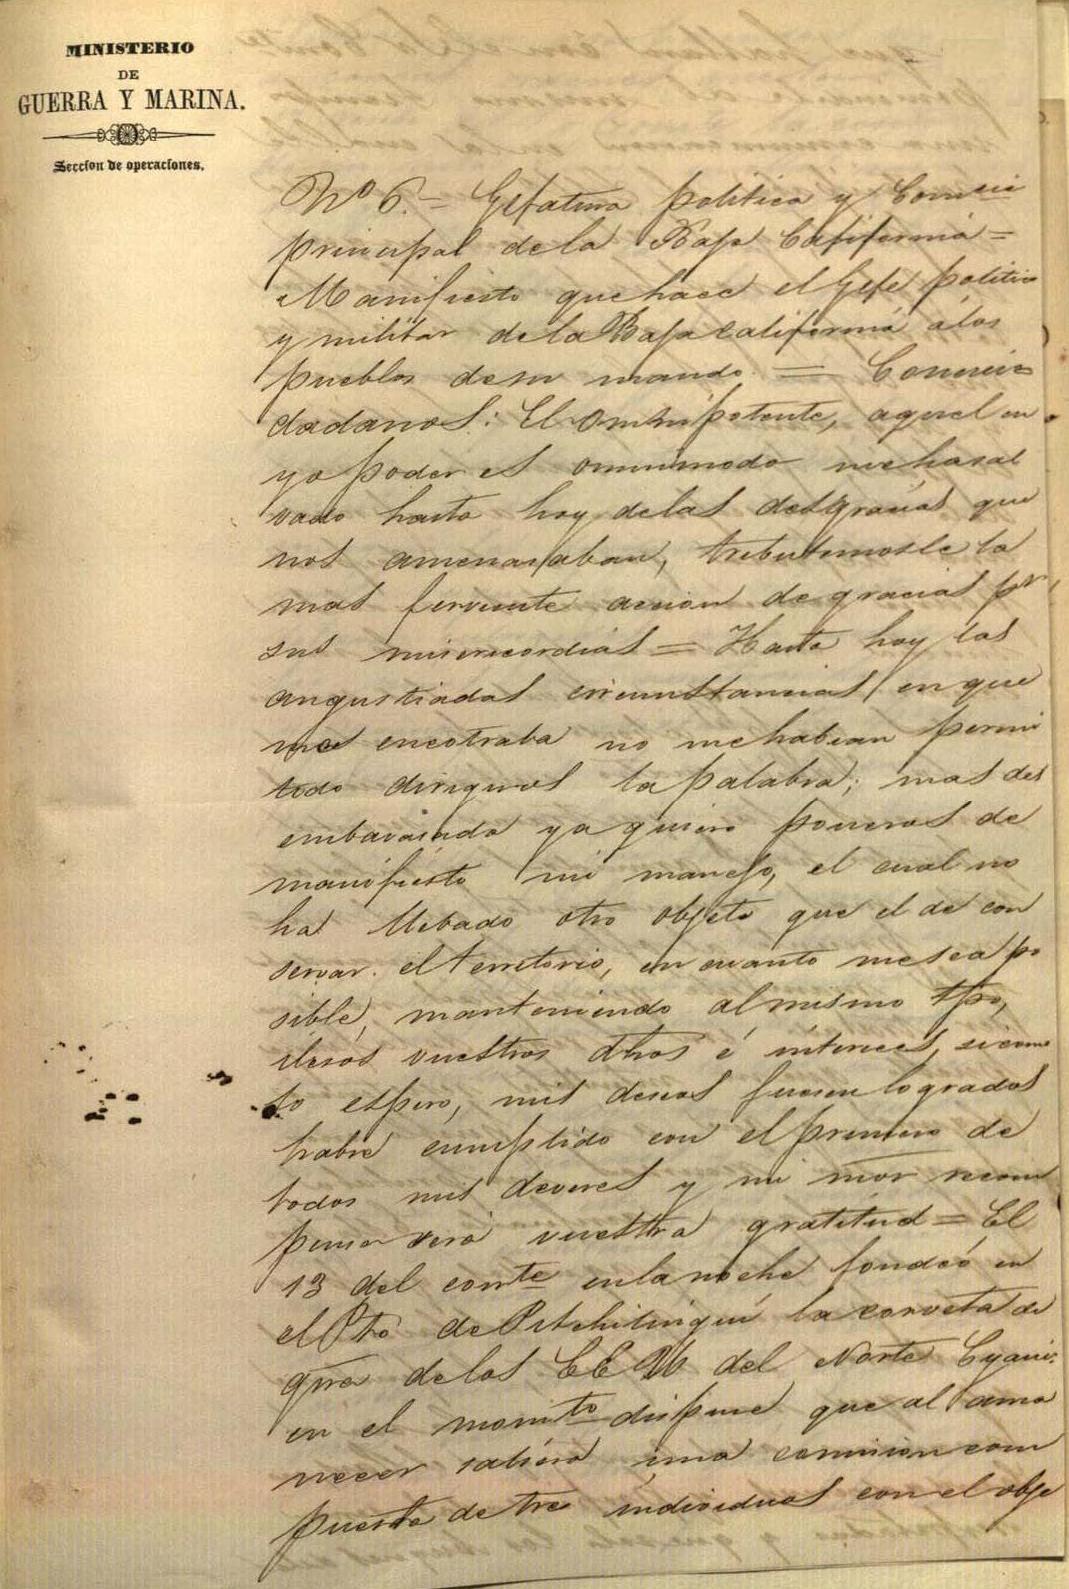 MINISTERIO
DE
GUERRA Y MARINA.
Seccion de operaciones.
Nº 6.= Gefatura politica y Comcia
principal de la Baja California=
Manifiesto que hace el Gefe politico
y militar de la Baja California á los
pueblos de su mando = Conciu
dadanos: El Omnipotente, aquel cu
yo poder es omnimodo me ha sal
vado hasta hoy de las desgracias que
nos amenazaban, tributemosle la
mas ferviente accion de gracias pr
sus misericordias = Hasta hoy las
angustiadas circunstancias en que
me encotraba no me habian permi
tido dirigiros la palabra; mas des
embarazado ya quiero poneros de
manifiesto mi manejo, el cual no
ha llebado otro objeto que el de con
servar el territorio, en cuanto me sea po
sible, manteniendo al mismo tpo,
ilesos vuestros dhos é interees, si como
lo espero, mis deseos fuesen logrados
habre cumplido con el primero de
todos mis deveres y mi mor recom
pensa será vuestra gratitud = El
13 del corrte en la noche fondeó en
el Pto de Pitchilingui la corveta de
grra de los EE UU del Norte Cyani.
en el momto dispuse que al ama
necer saliera una comision com
puesta de tres individuos con el obje